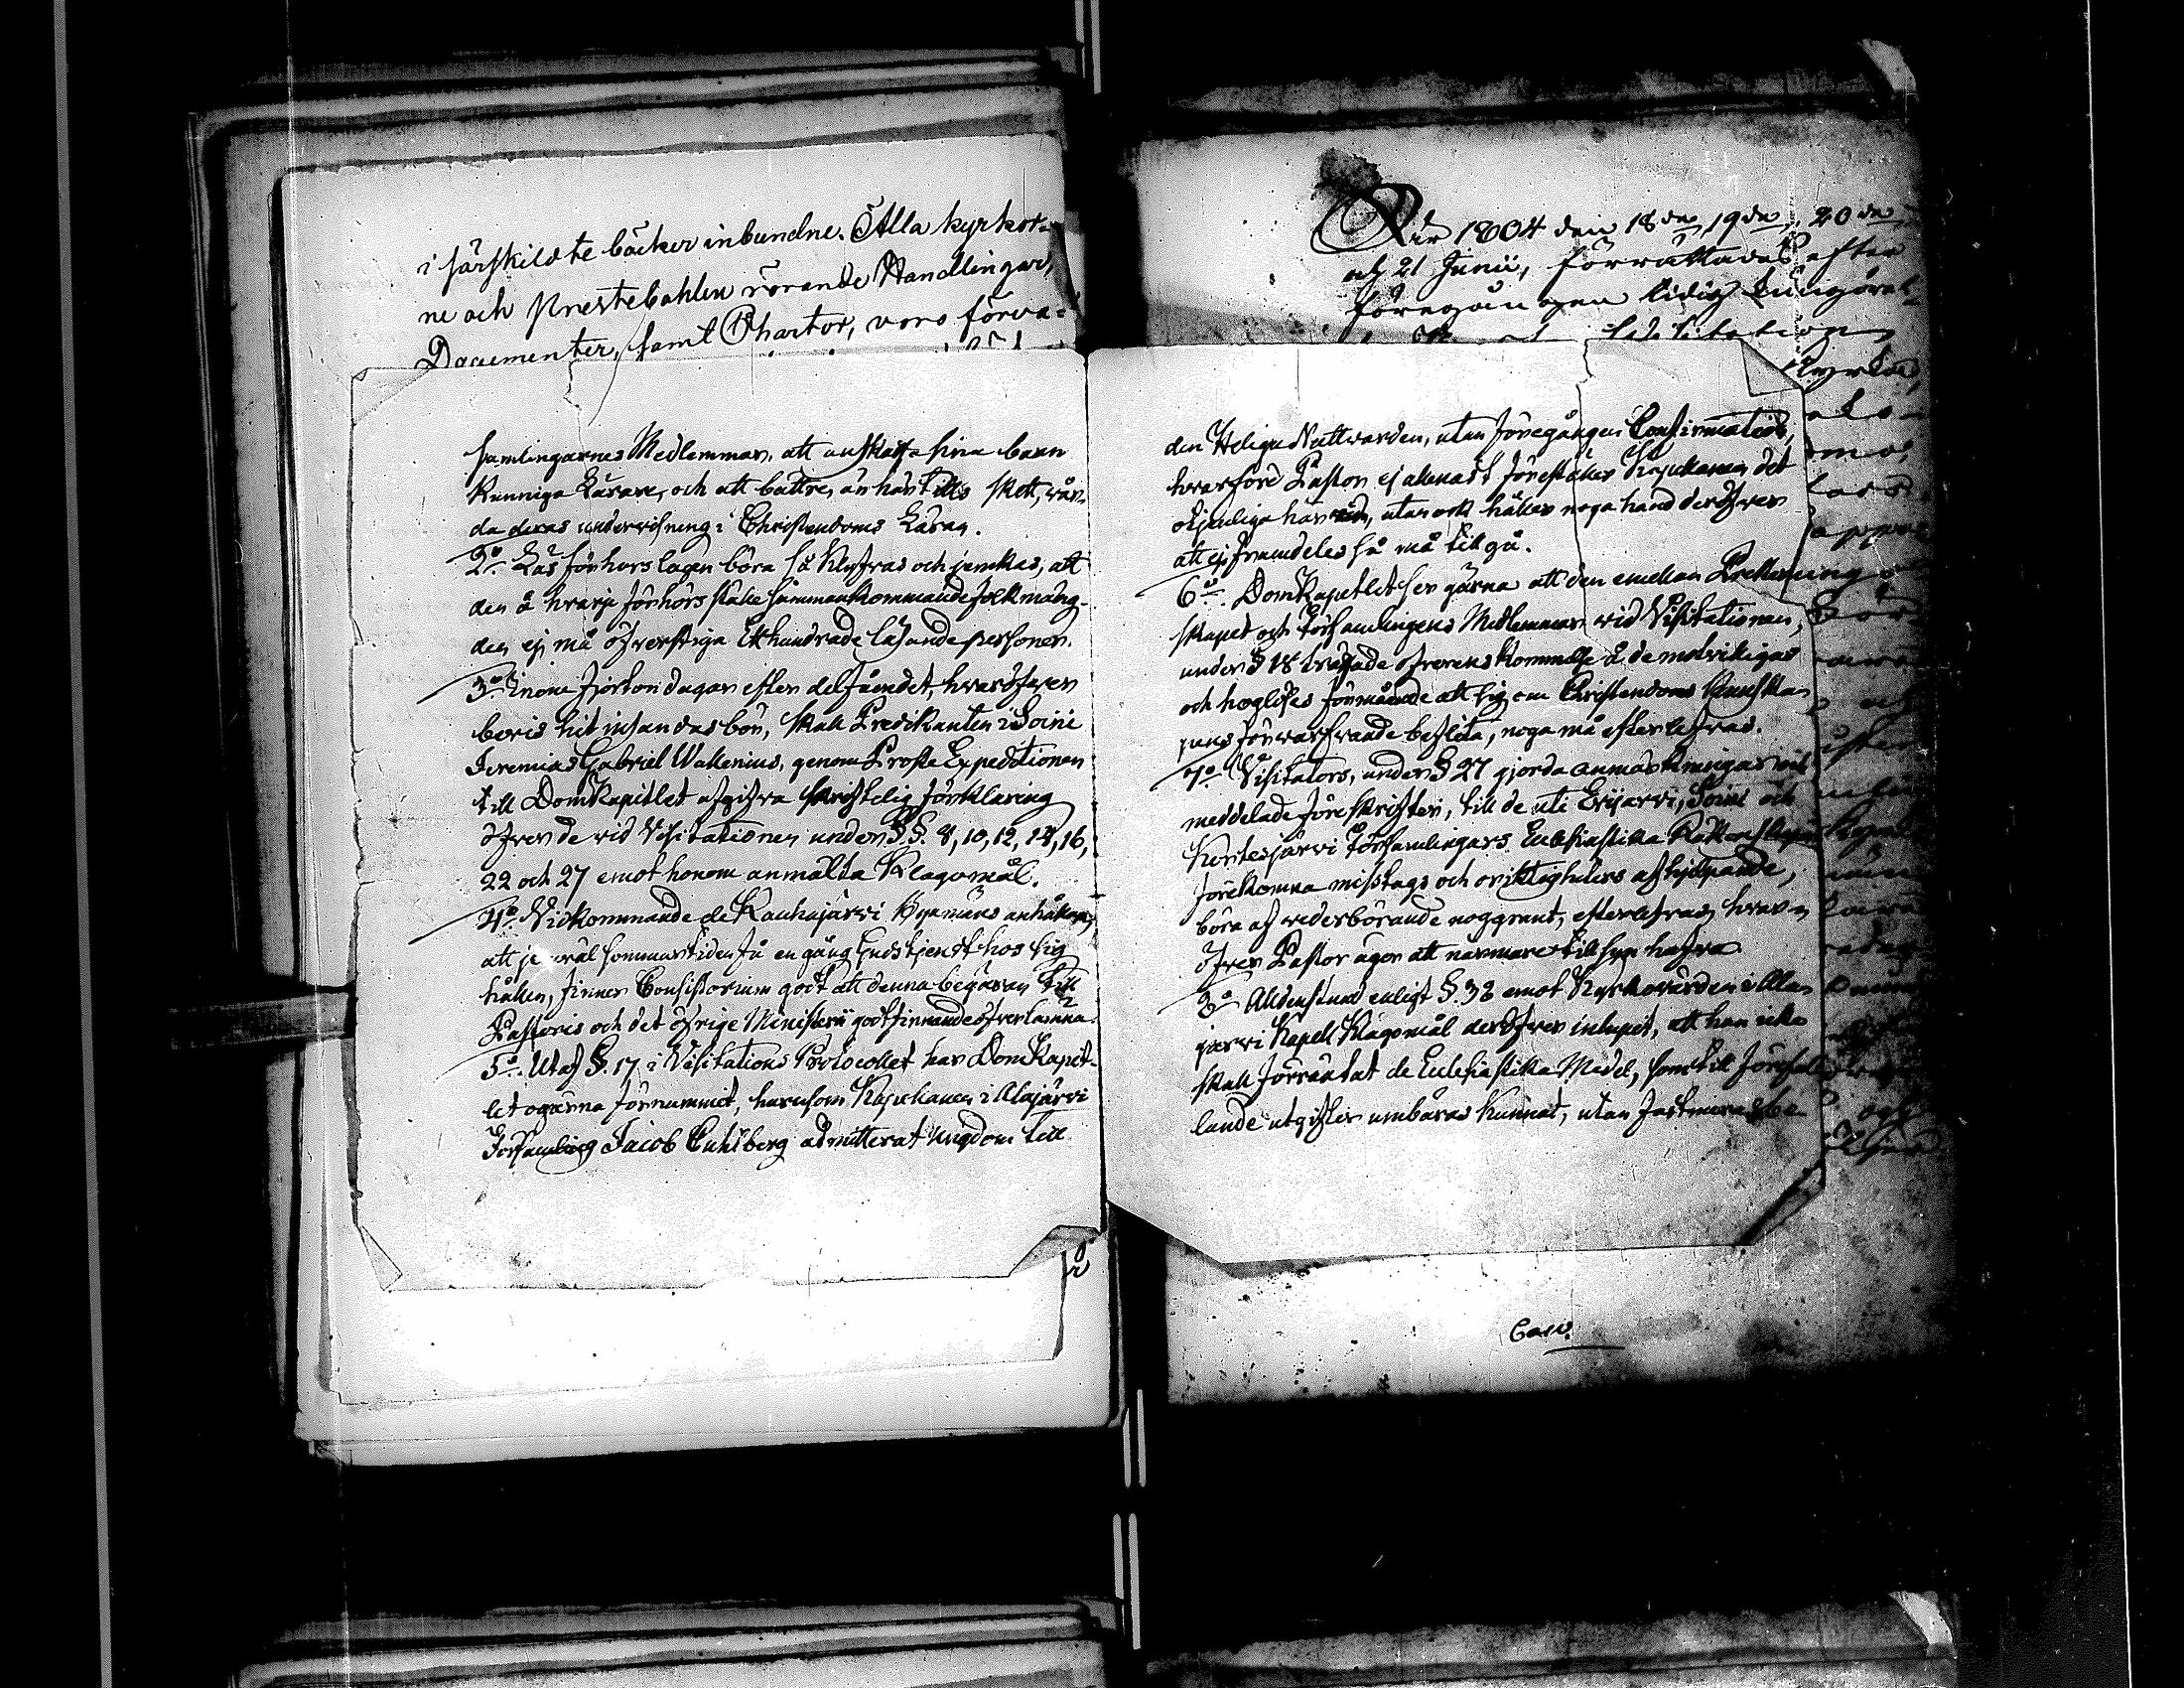 i särskildte böcker inbundne. Alla kyrkor-
ne och Prestebohlen rörande Handlingar,
Documenter, samt Chartor, voro förva-
samlingarnes Medlemmar, att anskaffa sina barn
kunniga Lärare, och att bättre, än här tills skett, vår-
da deras undervisning i Christendoms Läran.
2o. Läs förhors lagen böra så klyfras och jemkas, att
den å hvarje förhörs ställe sammankommande folkmäng-
den ej må öfverstiga Etthundrade läsande personer.
3o Inom fjorton dagar efter delfåendet, hvaröfver
bevis hit insandas bör, skall Predikanten i Soini
Jeremias Gabriel Wallenius, genom Proste Expeditionen
till DomKapitlet afgifva skriftelig förklaring
öfver de vid Visitationen under §§. 8, 10, 12, 14, 16,
22 och 27 emot honom anmälta Klagomål.
4o. Vidkommande de Kauhajärvi Byamäns anhållan,
att jemväl sommartiden få en gång Gudstjenst hos sig
hållen, finner Consistorium godt att denna begäran till
Pastoris och det öfrige Ministerii godtfinnande öfverlämna.
5o. Utaf §. 17 i Visitations Protocollet har DomKapit-
let ogärna förnummit, hurusom Kapellanen i Alajärvi
Församling Jacob Cuhlberg admitterat Ungdom till
den Heliga Nattvarden, utan föregången Confirmation,
hvarföre Pastor ej allenast föreställer Kapellanen det
otjenliga häri, utan ock håller noga hand deröfver
att ej framdeles så må tillgå.
6o. DomKapitlet ser gärna att den emellan
skapet och Församlingens Medlemmar vid Visitationen,
under § 18 träffade öfverenskommelse å de motvilligas
och hoglöses förmående att sig om Christendoms Kunska-
pens förvärfvande beflita, noga må efterlefvas.
7o Visitators, under § 27 gjorda anmärkningar och
meddelade föreskrifter, till de uti Evijärvi, Soini och
Kortesjärvi Församlingars Ecclesiastika
förekomna misstags och oriktigheters afhjelpande,
böra af vederbörande noggrant, efterlefvas, hvar-
öfver Pastor äger att närmare tillsyn hafva
8o Aldenstund enligt §. 38 emot Kyrkovärden i Ala-
järvi Kapell Klagomål deröfver inlupit, att han icke
skall förräntat de Ecclesiastika Medel, som till förefal-
lande utgifter umbäras kunnat, utan fastmera
År 1804 den 18de, 19de, 20de,
och 21 Junii, förrättades efter
föregången lidig kungörel-
Visitation
Kyrkan,
Caw.